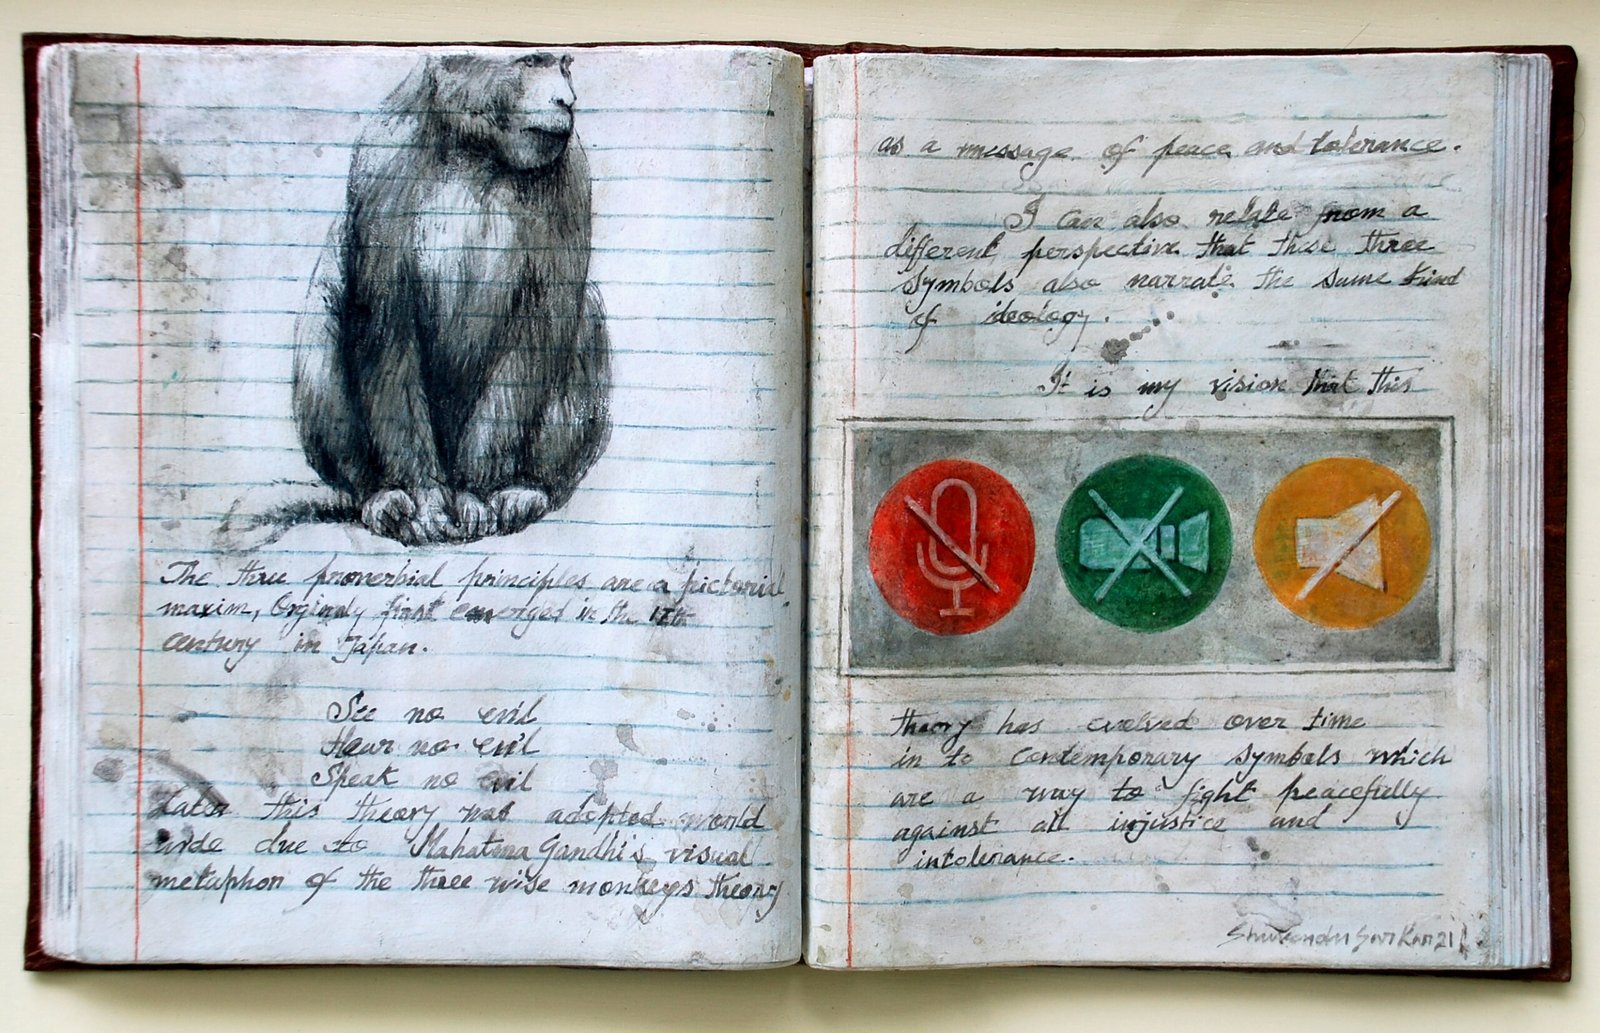 The three proverbial principles are a pictorial
maxim, Orginaly first emerged in the 17th
century in Japan.
See no evil
Hear no evil
Speak no evil
Later this theory was adopted world
wide due to Mahatma Gandhi's visual
metaphor of the three wise monkeys theory
as a message of peace and tolerance.
I can also relate from a
different perspective that these three
symbols also narrate the same kind
of ideology.
It is my vision that this
theory has evolved over time
in to contemporary symbols which
are a way to fight peacefully
against all injustice and
intolerance.
Shuvendu Sarkar 21